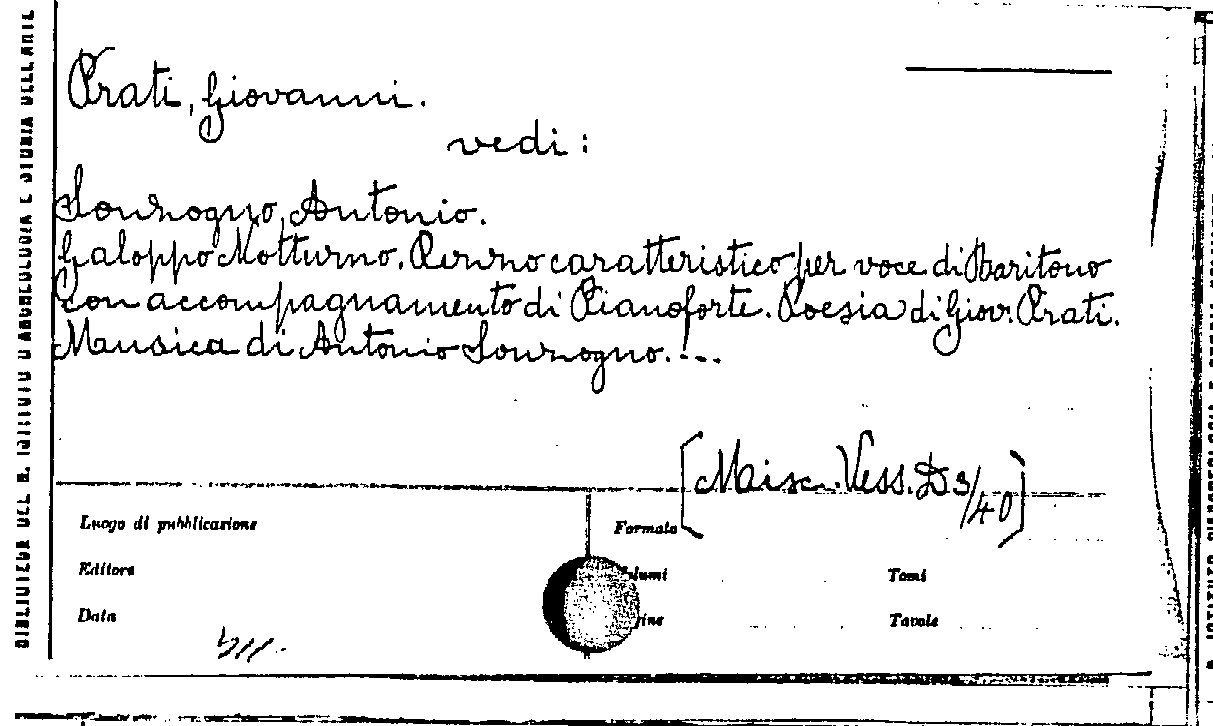 Prati, Giovanni.
vedi :
Sonzogno, Antonio.
Galoppo Notturno. Pezzo caratteristico per voce di Baritono
con accompagnamento di Pianoforte. Poesia di Giov. Prati.
Musica di Antonio Sonzogno. ...
[Misc. Vess. D 3/40]
Luogo di pubblicazione
Formato
Editore
Tomi
Data
Tavole
BIBLIOTECA DEL R. ISTITUTO D'ARCHEOLOGIA E STORIA DELL'ARTE